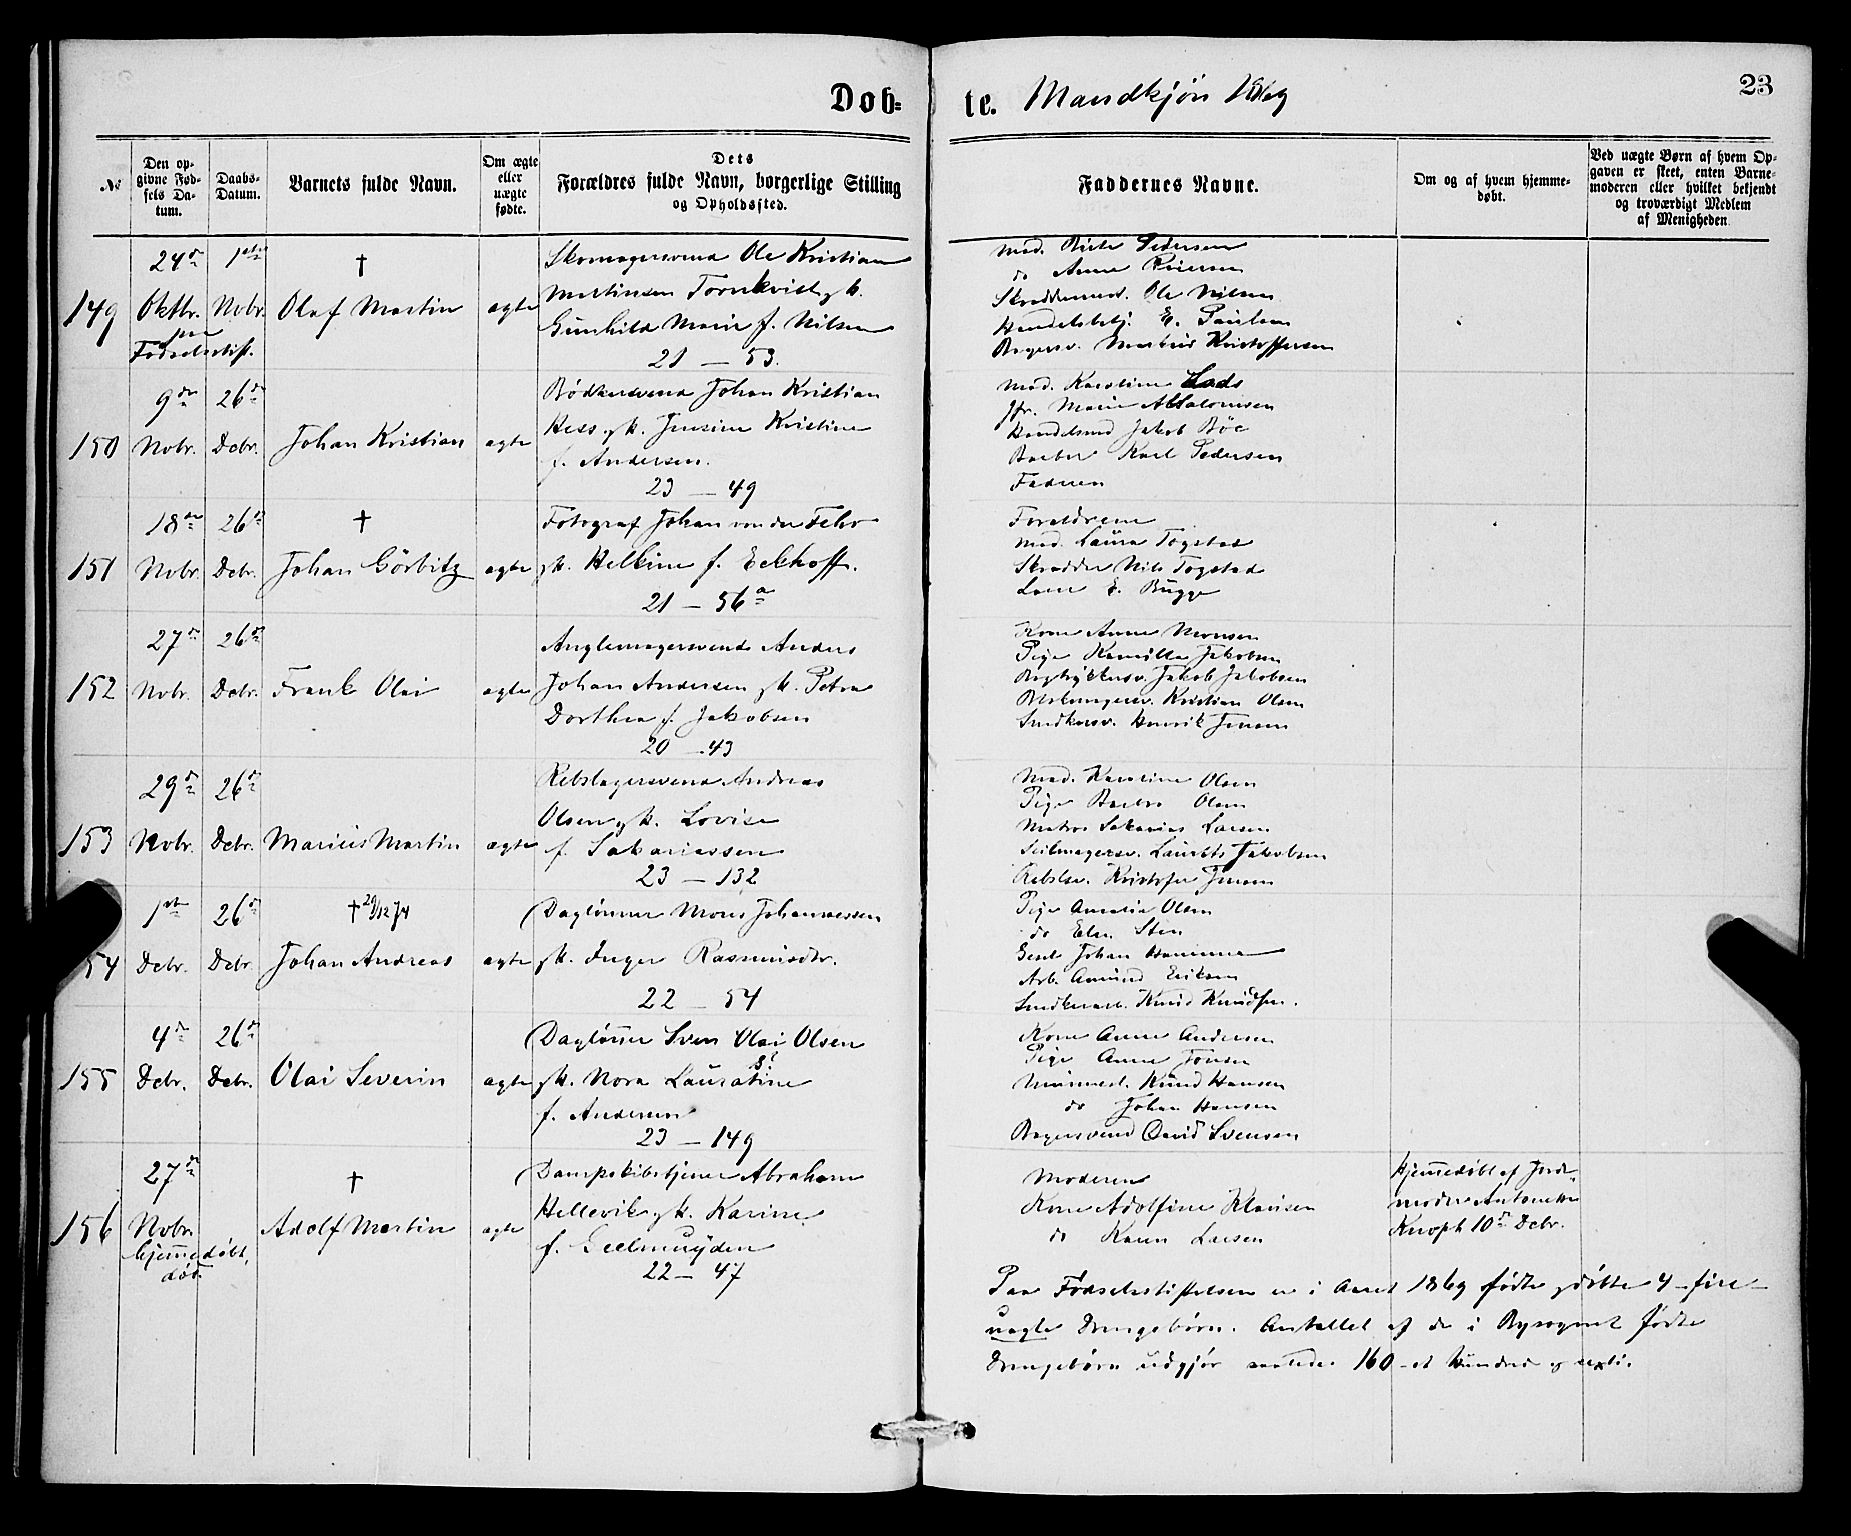 Døb=
te. Mandkjön 1869
23
№
Den op-
givne Fød-
sels Da-
tum.
Daabs-
Datum.
Barnets fulde Navn.
Om ægte
eller
uægte
fødte.
Dets
Forældres fulde Navn, borgerlige Stilling
og Opholdssted.
Faddernes Navne.
Om og af hvem hjemme-
døbt.
Ved uægte Børn af hvem Op-
gaven er skeet, enten Barne-
moderen eller hvilket bekjendt
og troværdigt Medlem
af Menigheden
149
24de
Oktbr.
paa
Fødselsstift.
1ste
Novbr.
†
Olaf Martin
ægte
Skomagersvend Ole Kristian
Martinsen Tornkvist gh.
Gunhild Marie f. Nilsen
21 — 53.
Mad. Birte Pedersen
do Anne
Skræddermest. Ole Nilsen
Handelsbetj. E. Paulsen
Bagersv. Markus Kristoffersen
150
9de
Novbr.
26de
Decbr.
Johan Kristian
ægte
Bødkersvend Johan Kristian
Hess gh. Jensine Kristine
f. Andersen.
23 — 49
Mad. Karoline Lads
Jfr. Marie Absalonsen
Handelsmd Jakob Bøe
Barber Karl Pedersen
Faderen
151
18de
Novbr.
26de
Decbr.
†
Johan Görbitz
ægte
Fotograf Johan von der Fehr
gh. Helline f. Eckhoff.
21 — 56a
Forældrene
Mad. Laura Togstad
Skrædder Nils Togstad
E. Bugge
152
27de
Novbr.
26de
Decbr.
Frank Olai
ægte
Anglemagersvend Anders
Johan Andersen gh. Petra
Dorthea f. Jakobsen
20 — 43
Kone Anne Monsen
Pige Kamilla Jakobsen
Bogtrykkersv. Jakob Jakobsen
Blokmagersv. Kristian Olsen
Snedkersv. Henrik Jensen
153
29de
Novbr.
26de
Decbr.
Marius Martin
ægte
Rebslagersvend Andreas
Olsen gh. Lovise
f. Sakariassen
23 — 132
Mad. Karoline Olsen
Pige Barbra Olsen
Matros Sakarias Larsen
Seilmagersv. Laurits Jakobsen
Rebslsv. Kristofer Jensen
54
1ste
Decbr.
26de
Decbr.
† 29/12 74
Johan Andreas
ægte
Daglønner Mons Johannessen
gh. Inger Rasmusdtr.
22 — 54
Pige Amalie Olsen
do Elen Sten
Johan Hammer
Arb. Amund Eriksen
Snedkerarb. Knud Knudsen.
155
4de
Decbr.
26de
Decbr.
Olai Severin
ægte
Daglønner Sven Olai Olsen
gh. Nora Lauratine
f. Andersen
23 — 149
Kone Anne Andersen
Pige Anne Jonsen
Murmest. Knud Hansen
do Johan Hansen
Bagersvend David Svensen
156
27de
Novbr.
hjemmedöbt,
död.
†
Adolf Martin
ægte
Dampskibstjener Abraham
Hellevik gh. Karine
f. Geelmuyden
22 — 47
Moderen
Kone Adolfine Klausen
do Karen Larsen
Hjemmedöbt af Jorde-
moder Antonette
Knoph 10de Decbr.
Paa Fødselsstiftelsen er i Aaret 1869 fødte döbte 4 — fire —
uægte Drengebørn. Antallet af de i Bysognet fødte
Drengebørn udgjør saaledes 160 — et hundred og sexti.